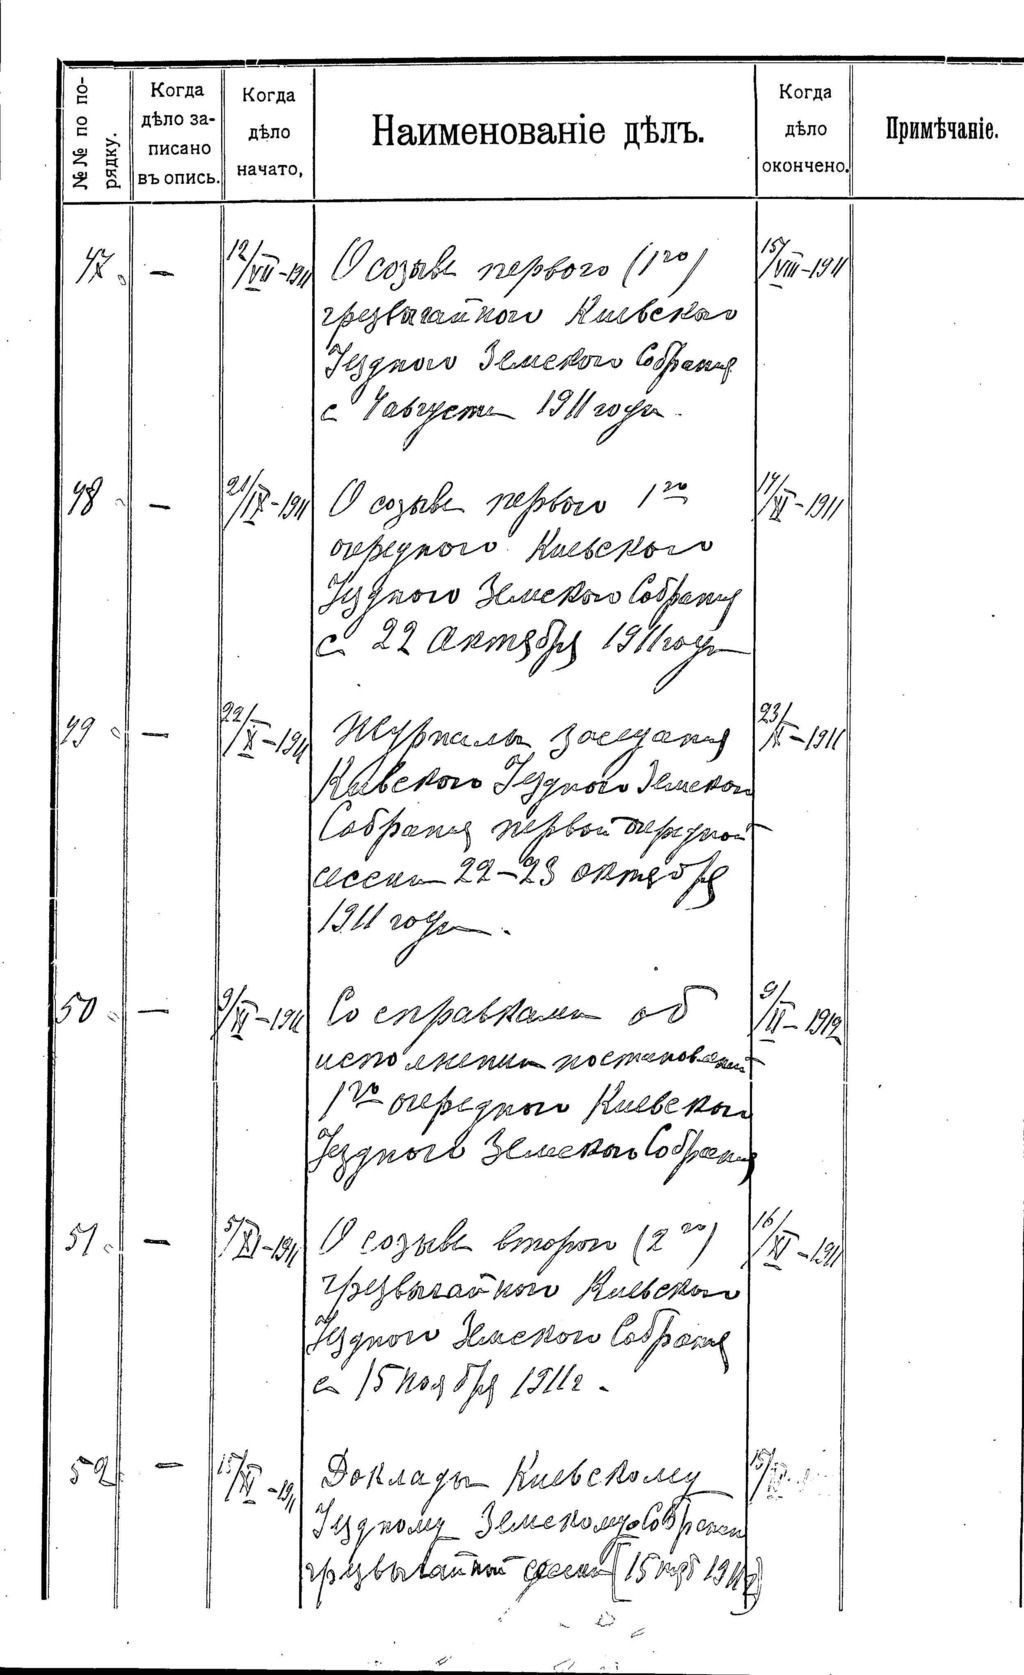 №№ по по-
рядку.
Когда
дѣло за-
писано
въ опись.
Когда
дѣло
начато,
Наименованіе дѣлъ.
Когда
дѣло
окончено.
Примѣчаніе.
47 — 12/VII-1911 О созыве первого (1го) 15/VIII-1911
чрезвычайного Киевского
Уездного Земского Собрания
с 4 августа 1911 года.
48 — 21/IX-1911 О созыве первого 1го 14/XI-1911
очередного Киевского
Уездного Земского Собрания
с 22 октября 1911 года
49 — 22/X-1911 Журналы заседания 23/X-1911
Киевского Уездного Земского
Собрания первой очередной
сессии 22-23 октября
1911 года.
50 — 9/XI-1911 Со справками об 9/II-1912
исполнении постановлений
1го очередного Киевского
Уездного Земского Собрания
51 — 5/XI-1911 О созыве второго (2го) 16/XI-1911
чрезвычайного Киевского
Уездного Земского Собрания
с 15 ноября 1911г.
52 — 15/XI-1911 Доклады Киевскому
Уездному Земскому Собранию
чрезвычайной сессии [15 нояб 1911г)